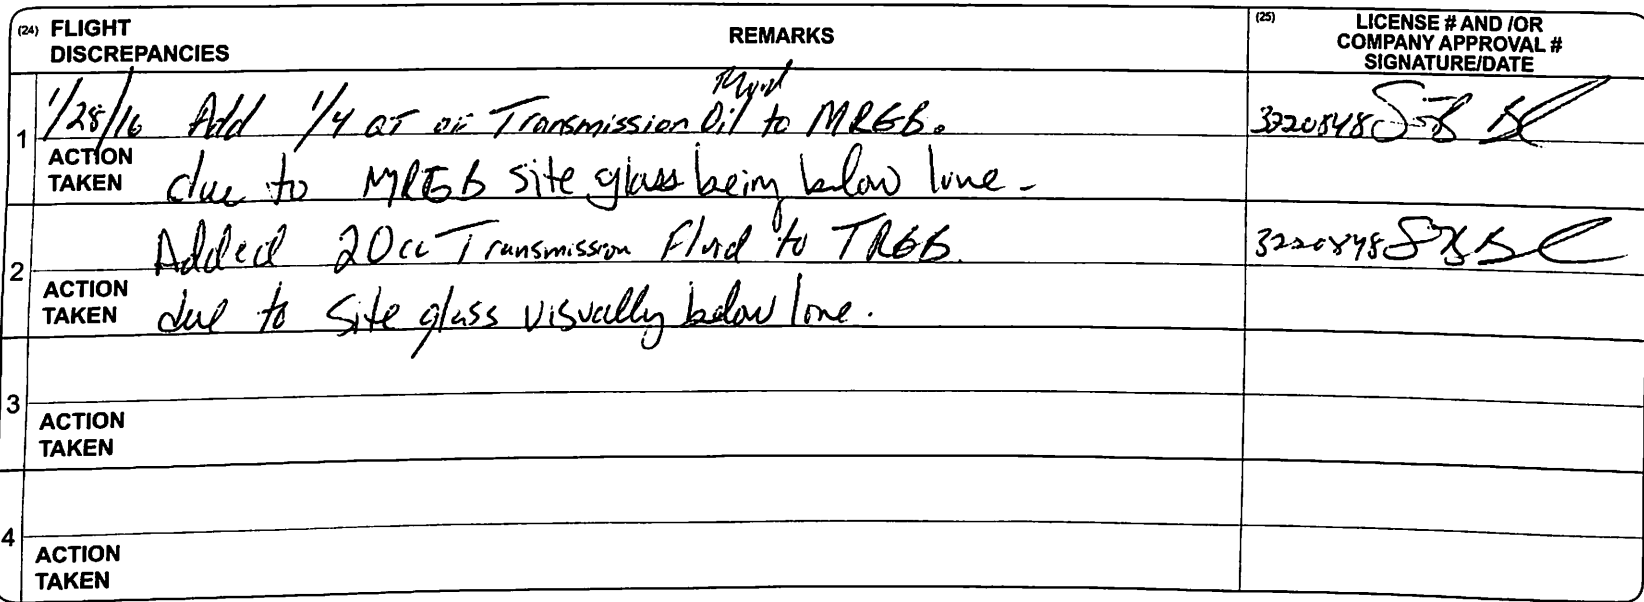 (24) FLIGHT DISCREPANCIES REMARKS (25) LICENSE # AND /OR COMPANY APPROVAL # SIGNATURE/DATE
1 1/28/16 Add 1/4 QT Transmission Oil to MRGB. 3220848
ACTION TAKEN due to MRGB site glass being below line -
2 Added 20cc Transmission Fluid to TRGB. 3220848
ACTION TAKEN due to site glass visually below line.
3
ACTION TAKEN
4
ACTION TAKEN